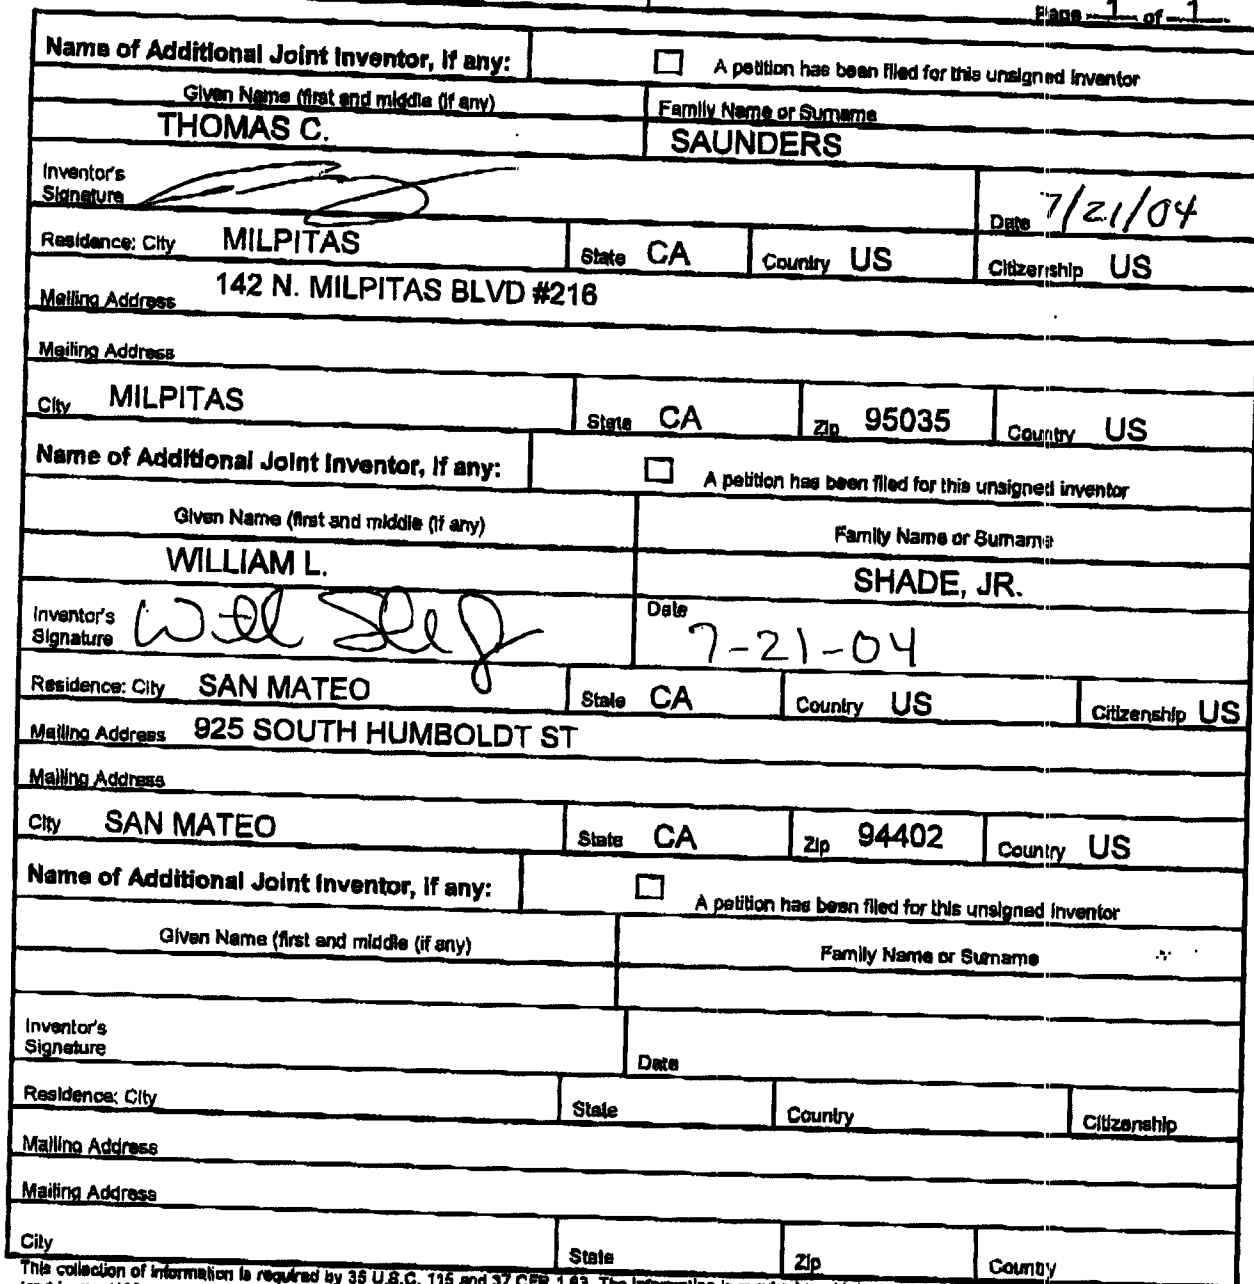 Page 1 of 1
Name of Additional Joint Inventor, if any: A petition has been filed for this unsigned inventor
Given Name (first and middle (if any) Family Name or Surname
THOMAS C. SAUNDERS
Inventor's
Signature Date 7/21/04
Residence: City MILPITAS State CA Country US Citizenship US
Mailing Address 142 N. MILPITAS BLVD #216
Mailing Address
City MILPITAS State CA Zip 95035 Country US
Name of Additional Joint Inventor, if any: A petition has been filed for this unsigned inventor
Given Name (first and middle (if any) Family Name or Surname
WILLIAM L. SHADE, JR.
Inventor's
Signature Date 7-21-04
Residence: City SAN MATEO State CA Country US Citizenship US
Mailing Address 925 SOUTH HUMBOLDT ST
Mailing Address
City SAN MATEO State CA Zip 94402 Country US
Name of Additional Joint Inventor, if any: A petition has been filed for this unsigned inventor
Given Name (first and middle (if any) Family Name or Surname
Inventor's
Signature Date
Residence: City State Country Citizenship
Mailing Address
Mailing Address
City State Zip Country
This collection of information is required by 35 U.S.C. 115 and 37 CFR 1.63. The information is